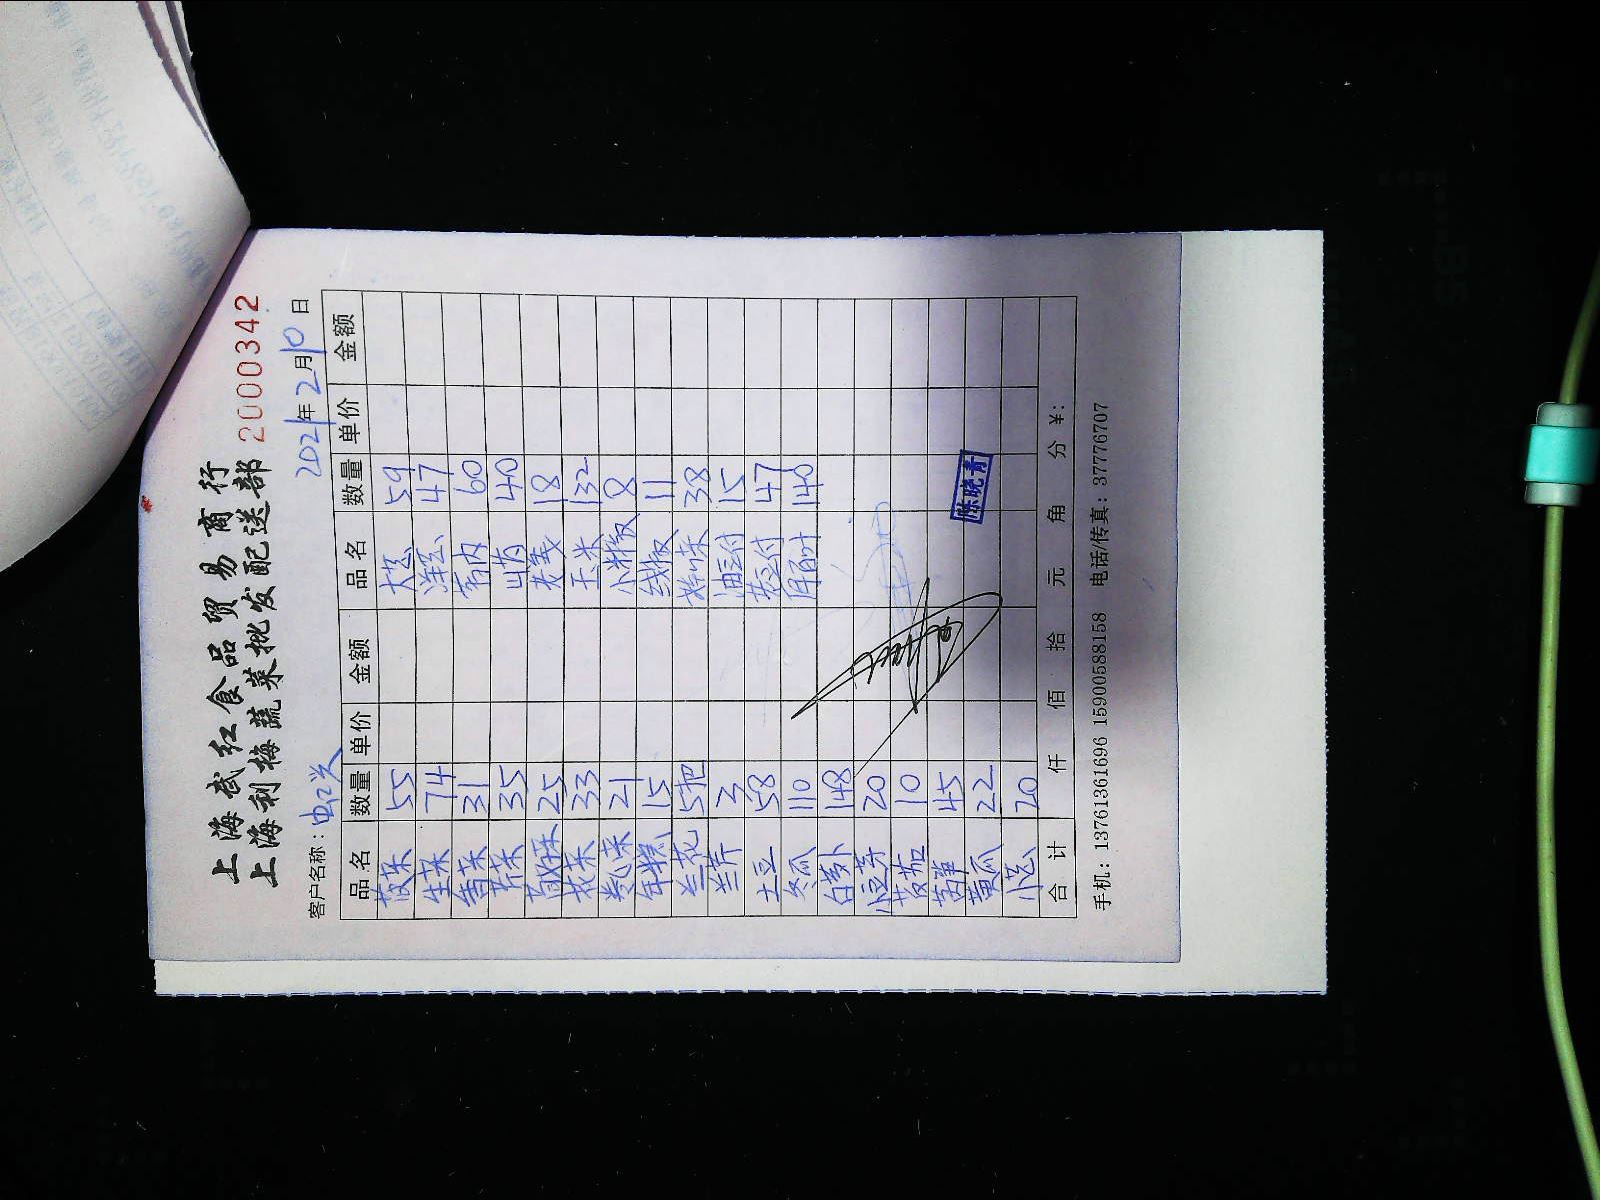 上海武红食品贸易商行
上海利梅蔬菜批发配送部
2000342
客户名称: 2021年2月10日
品名 数量 单价 金额 品名 数量 单价 金额
菠菜 55 大葱 59
生菜 74 洋葱 47
香菜 31 60
芹菜 35 山药 40
25 老姜 18
33 玉米 132
卷心菜 21 小辣椒 8
年糕 15 线椒 11
兰花 5把 38
兰芹 3 15
土豆 58 47
冬瓜 110 140
白萝卜 148
小豆芽 20
茨菇 10
莴笋 45
黄瓜 22 陈晓青
小葱 20
合计 仟 佰 拾 元 角 分 ¥:
手机: 13761361696 15900588158 电话/传真: 37776707